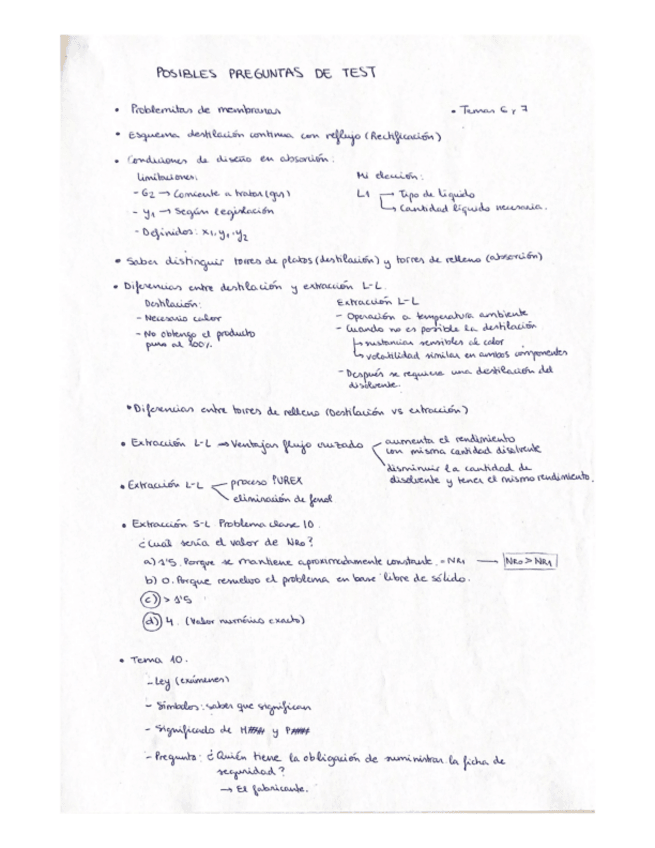 POSIBLES PREGUNTAS DE TEST
• Problemitas de membranas
• Temas 6 y 7
• Esquema destilación continua con reflujo (Rectificación)
• Condiciones de diseño en absorción:
Limitaciones:
- G2 → Corriente a tratar (gas)
- y1 → Según legislación
- Definidos: x1, y1, y2
Mi elección:
L1 → Tipo de líquido
↳ Cantidad líquido necesaria.
• Saber distinguir torres de platos (destilación) y torres de relleno (absorción)
• Diferencias entre destilación y extracción L-L.
Destilación:
- Necesario calor
- No obtengo el producto
puro al 100%.
Extracción L-L
- Operación a temperatura ambiente
- Cuando no es posible la destilación
↳ sustancias sensibles al calor
↳ volatilidad similar en ambos componentes
- Después se requiere una destilación del
disolvente.
• Diferencias entre torres de relleno (Destilación vs extracción)
• Extracción L-L → Ventajas flujo cruzado
aumenta el rendimiento
con misma cantidad disolvente
disminuir la cantidad de
disolvente y tener el mismo rendimiento.
• Extracción L-L
proceso PUREX
eliminación de fenol
• Extracción S-L Problema clase 10.
¿Cual sería el valor de NR0?
a) 1'5. Porque se mantiene aproximadamente constante. = NR1 — NR0 > NR1
b) 0. Porque resuelvo el problema en base libre de sólido.
c) > 1'5
d) 4. (Valor numérico exacto)
• Tema 10.
- Ley (exámenes)
- Símbolos: saber que significan
- Significado de H### y P###
- Pregunta: ¿Quién tiene la obligación de suministrar la ficha de
seguridad?
→ El fabricante.